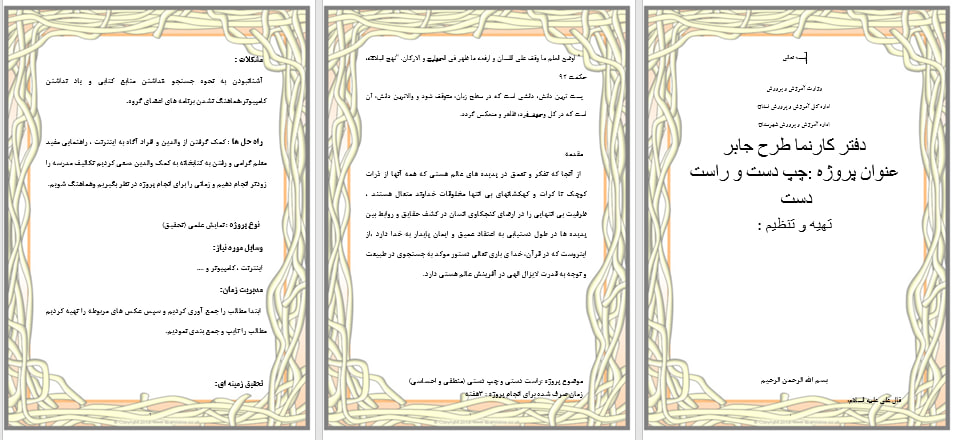 بسمه تعالی
وزارت آموزش و پرورش
اداره کل آموزش و پرورش استان
اداره آموزش و پرورش شهرستان
دفتر کارنما طرح جابر
عنوان پروژه :چپ دست و راست
دست
تهیه و تنظیم :
بسم الله الرحمن الرحیم
قال علی علیه السلام:
اوضع العلم ما وقف علی اللسان و ارفعه ما ظهر فی الجوارح و الارکان. "نهج البلاغه،
حکمت ۹۲
پست ترین دانش، دانشی است که در سطح زبان، متوقف شود و والاترین دانش، آن
است که در کل وجود فرد، ظاهر و منعکس گردد.
مقدمه
از آنجا که تفکر و تعمق در پدیده های عالم هستی که همه آنها از ذرات
کوچک تا کرات و کهکشانهای بی انتها مخلوقات خداوند متعال هستند ،
ظرفیت بی انتهایی را در ارضای کنجکاوی انسان در کشف حقایق و روابط بین
پدیده ها در طول دستیابی به اعتقاد عمیق و ایمان پایدار به خدا دارد .از
اینروست که در قرآن، خدا ی باری تعالی دستور موکد به جستجوی در طبیعت
و توجه به قدرت لایزال الهی در آفرینش عالم هستی دارد.
موضوع پروژه :راست دستی و چپ دستی (منطقی و احساسی)
زمان صرف شده برای انجام پروژه : ۳هفته
مشکلات :
آشنانبودن به نحوه جستجو نداشتن منابع کتابی و یاد نداشتن
کامپیوتر هماهنگ نشدن برنامه های اعضای گروه.
راه حل ها : کمک گرفتن از والدین و افراد آگاه به اینترنت ، راهنمایی مفید
معلم گرامی و رفتن به کتابخانه به کمک والدین سعی کردیم تکالیف مدرسه را
زودتر انجام دهیم و زمانی را برای انجام پروژه در نظر بگیریم وهماهنگ شویم.
نوع پروژه : نمایش علمی (تحقیق)
وسایل مورد نیاز:
اینترنت ، کامپیوتر و ....
مدیریت زمان:
ابتدا مطالب را جمع آوری کردیم و سپس عکس های مربوطه را تهیه کردیم
مطالب را تایپ و جمع بندی نمودیم.
تحقیق زمینه ای: